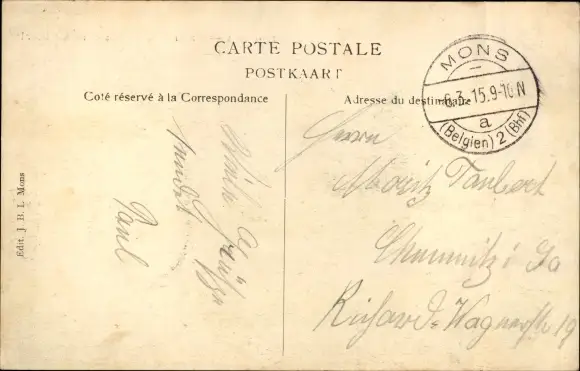 CARTE POSTALE
POSTKAART
Coté réservé à la Correspondance
Adresse du destinataire
MONS
6.3.15.9-10N
a
(Belgien) 2 (Bhf)
Edit. J. B. L. Mons
Grüßen
sendet
Paul
Herrn
Moritz Taubert
Chemnitz i Sa
Richard-Wagnerstr 19